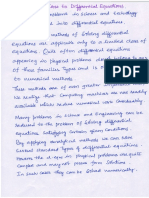 to Differential Equations
problems in science and Technology
into differential equations.
methods of Solving differential
Equations are applicable only to a limited class of
Equations. Quite often differential equations
appearing in physical problems do not belong to
of these familiar types and is
to numerical methods
These methods are of even greater
we realize that computing machines are now readily
available which reduce numerical work considerably.
Many problems in Science and Engineering can be
reduced to the problem of Solving differential
Equations Satisfying certain given Conditions
By applying analytical methods we can
Solved standard types of differential equations
However the d. eqns in physical problems are quite
Complex and may not possess form solutions
In such cases they can be solved numerically.